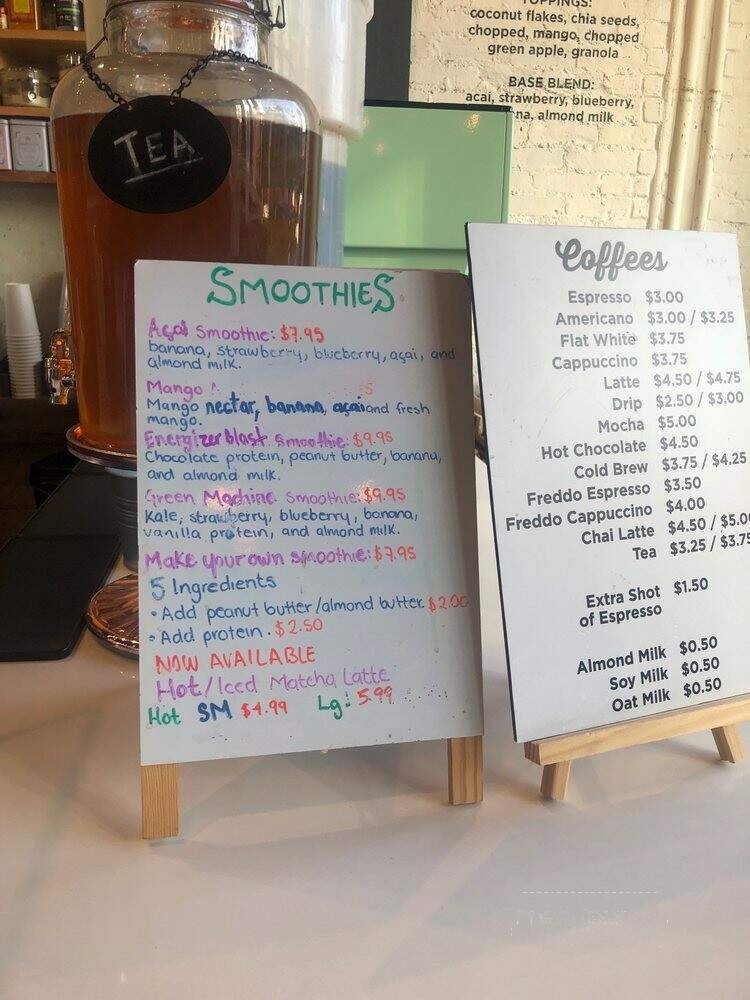 TOPPINGS:
coconut flakes, chia seeds,
chopped, mango, chopped
green apple, granola
BASE BLEND:
acai, strawberry, blueberry,
na, almond milk
TEA
SMOOTHIES
Açai Smoothie: $7.95
banana, strawberry, blueberry, açai, and
almond milk.
Mango
Mango nectar, banana, açai and fresh
mango.
Energizer blast Smoothie: $9.95
Chocolate protein, peanut butter, banana,
and almond milk.
Green Machine Smoothie: $9.95
Kale, strawberry, blueberry, banana,
vanilla protein, and almond milk.
Make your own smoothie: $7.95
5 Ingredients
• Add peanut butter/almond butter. $2.00
• Add protein. $2.50
NOW AVAILABLE
Hot/Iced Matcha Latte
Hot SM $4.99 Lg: 5.99
Coffees
Espresso $3.00
Americano $3.00 / $3.25
Flat White $3.75
Cappuccino $3.75
Latte $4.50 / $4.75
Drip $2.50 / $3.00
Mocha $5.00
Hot Chocolate $4.50
Cold Brew $3.75 / $4.25
Freddo Espresso $3.50
Freddo Cappuccino $4.00
Chai Latte $4.50 / $5.00
Tea $3.25 / $3.75
Extra Shot $1.50
of Espresso
Almond Milk $0.50
Soy Milk $0.50
Oat Milk $0.50